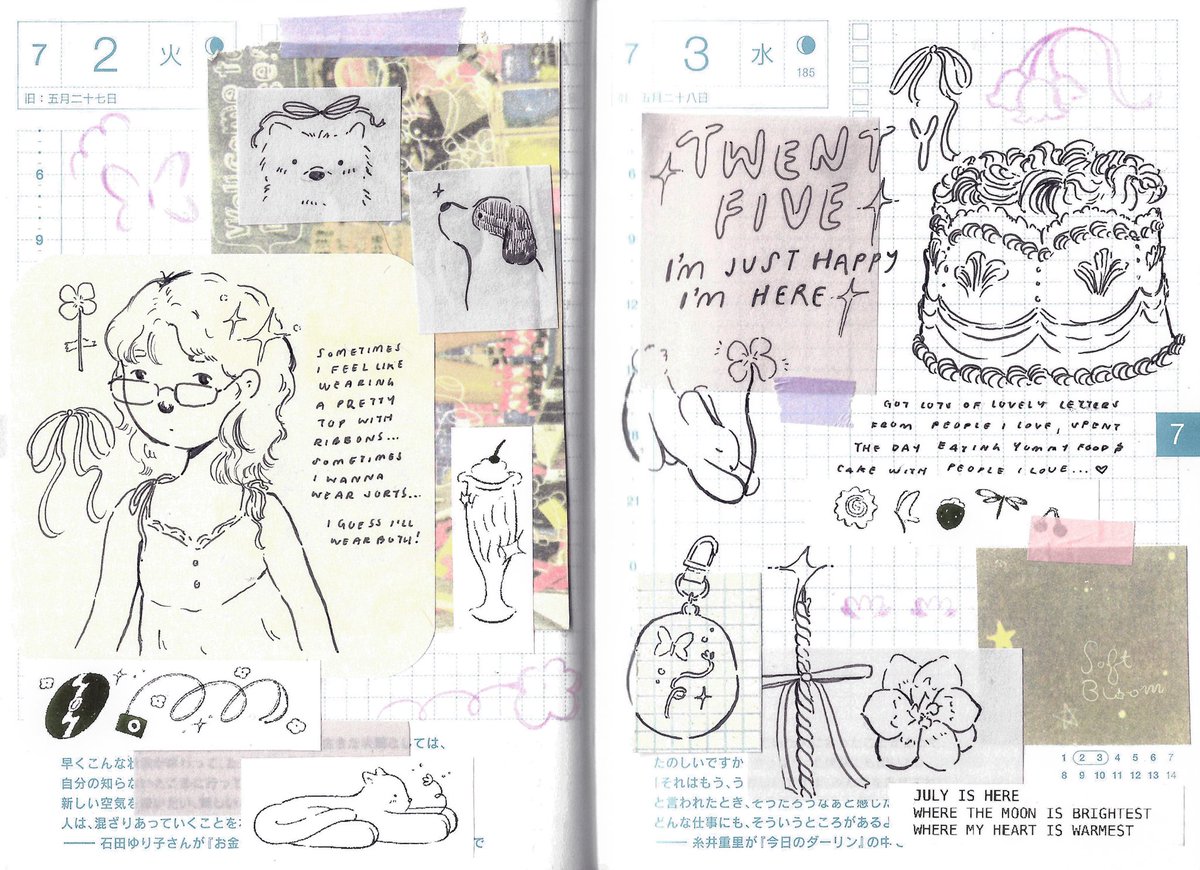 7 2 火
旧：五月二十七日
6
9
Welcome to
SOMETIMES
I FEEL LIKE
WEARING
A PRETTY
TOP WITH
RIBBONS...
SOMETIMES
I WANNA
WEAR JORTS...
I GUESS I'LL
WEAR BOTH!
ては、
早くこんな
自分の知らな
新しい空気を
人は、混ざりあっていくことを
—— 石田ゆり子さんが『お金
で
7 3 水
185
五月二十八日
TWENTY
FIVE
I'M JUST HAPPY
I'M HERE
GOT LOTS OF LOVELY LETTERS
FROM PEOPLE I LOVE, SPENT
THE DAY EATING YUMMY FOOD &
CAKE WITH PEOPLE I LOVE... ♡
7
6
9
12
21
0
Soft
Bloom
1 2 3 4 5 6 7
8 9 10 11 12 13 14
たのしいですか
「それはもう、う
と言われたとき、そうだろうなあと感じた
どんな仕事にも、そういうところがあるよ
—— 糸井重里が『今日のダーリン』の中
JULY IS HERE
WHERE THE MOON IS BRIGHTEST
WHERE MY HEART IS WARMEST